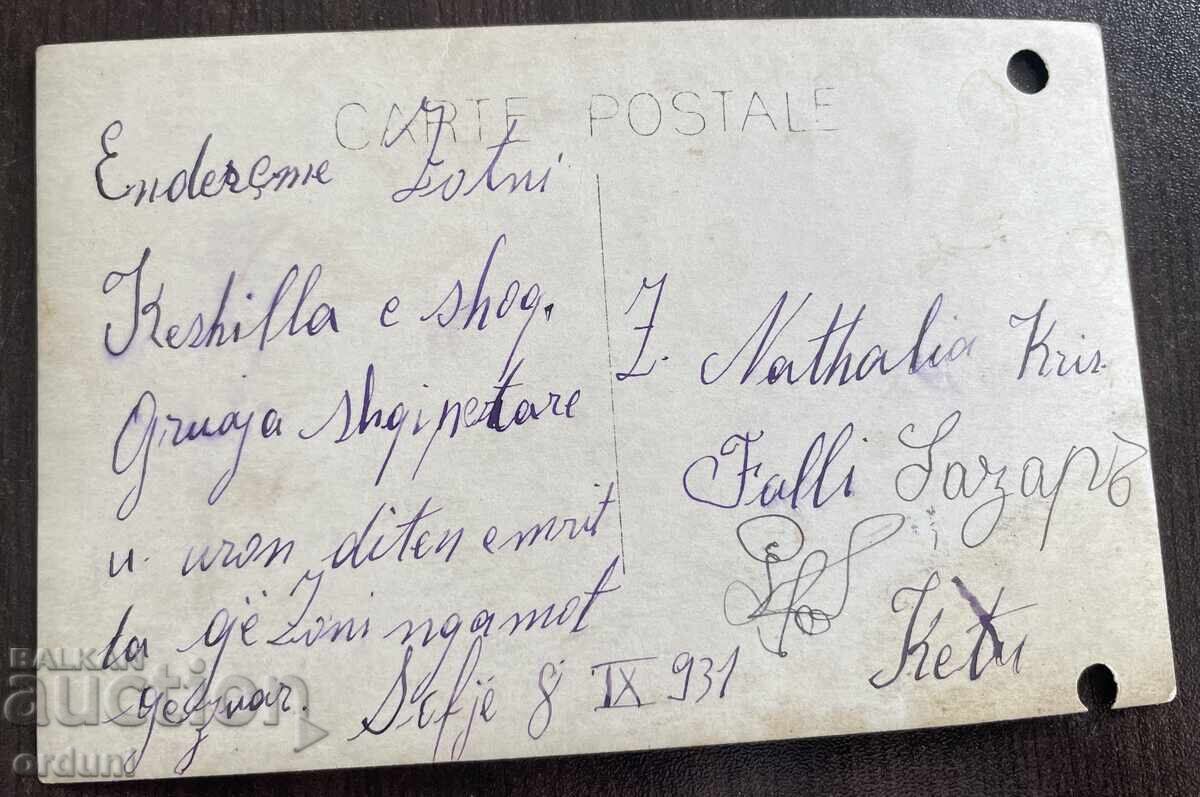 CARTE POSTALE
Enderçme Zotni
Keshilla e shoq.
Gruaja shqipetare
u uron diten emrit
ta gëzoni ngamot
gëzuar. Sofje 8 IX 931
Z. Nathalia Kris.
Falli Лазаръ
Ketu
BALKAN
auction
orduni